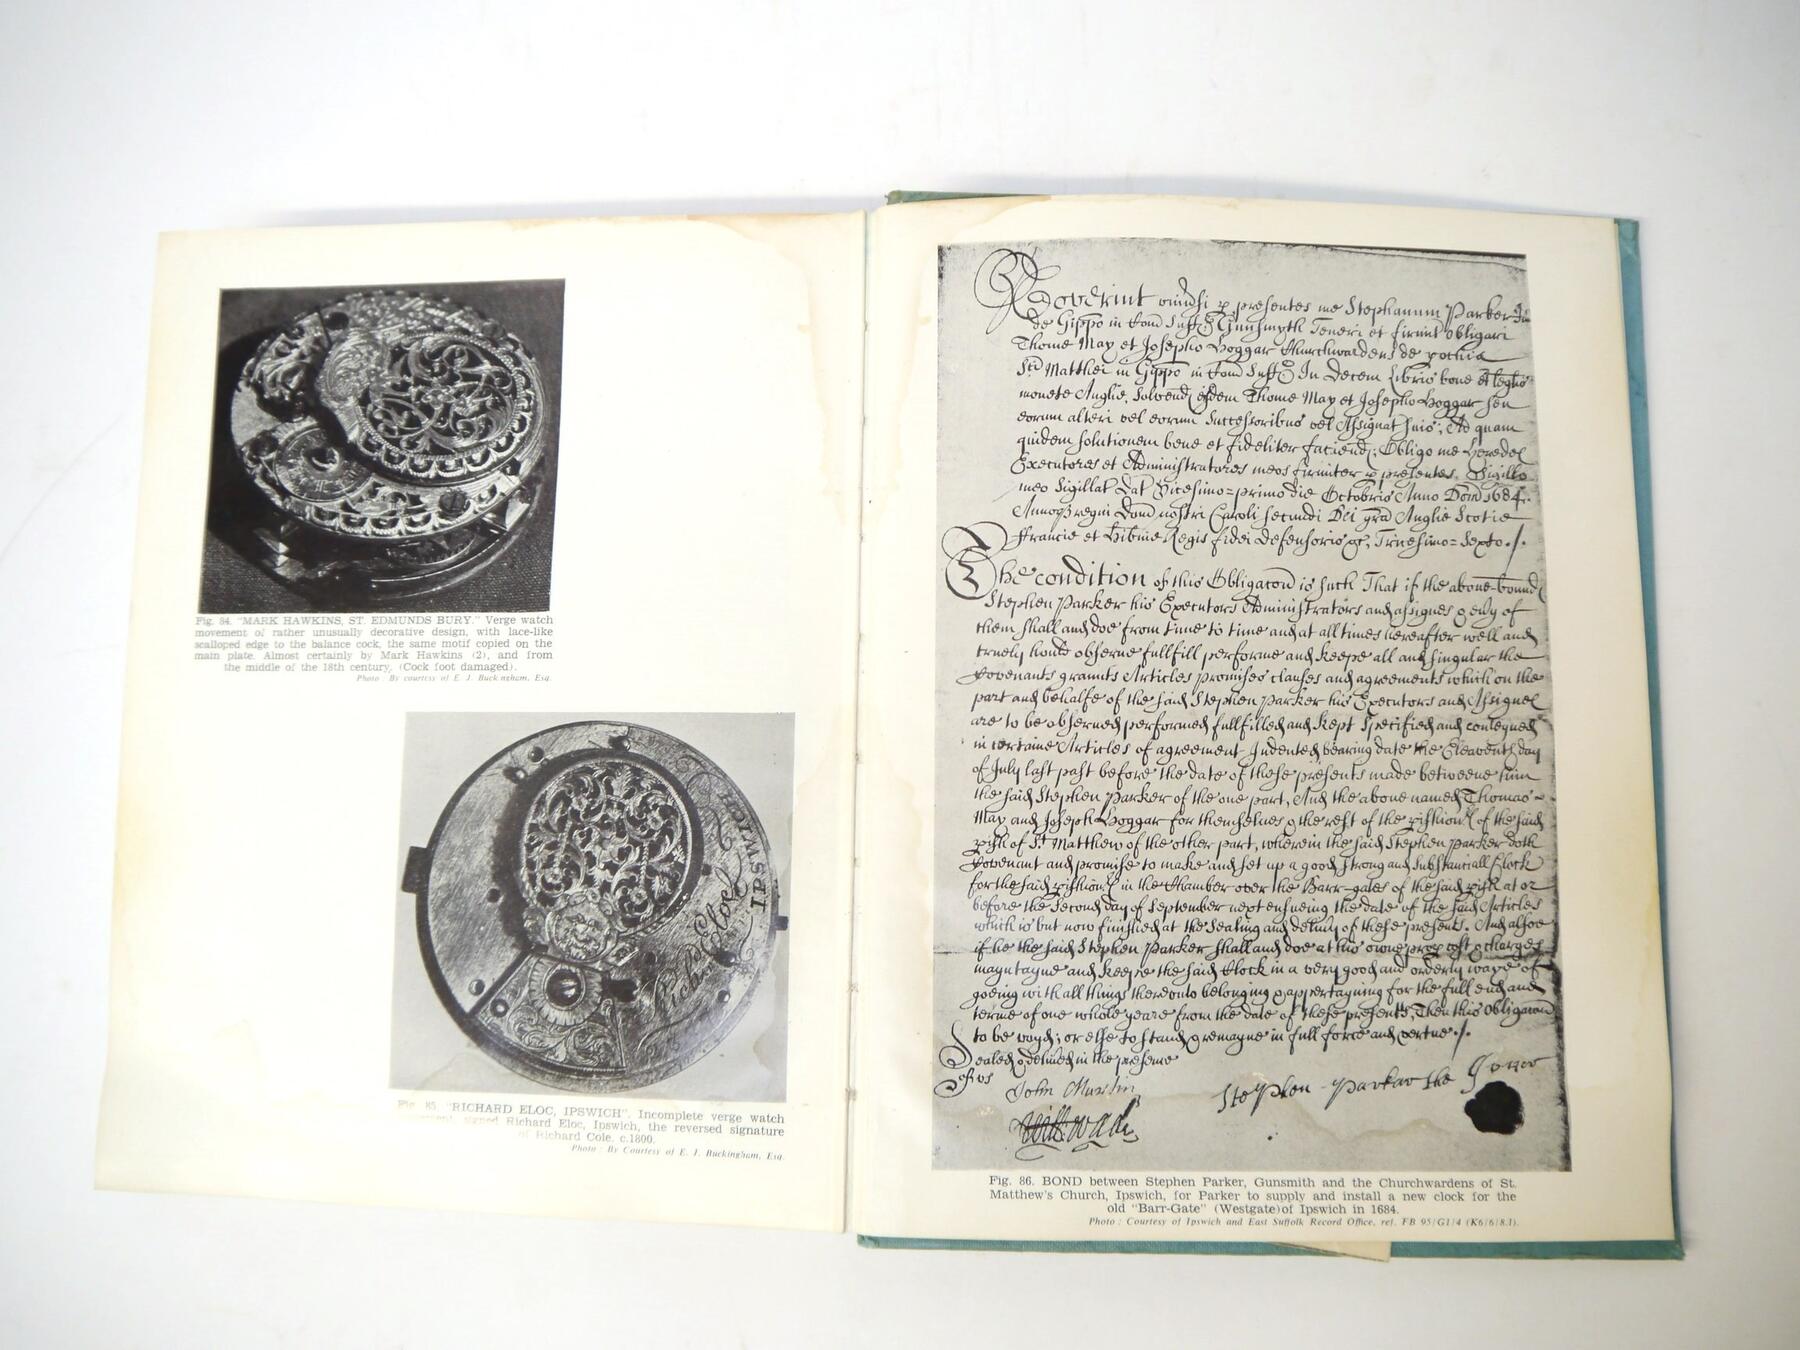 Fig. 84. "MARK HAWKINS, ST. EDMUNDS BURY." Verge watch
movement of rather unusually decorative design, with lace-like
scalloped edge to the balance cock, the same motif copied on the
main plate. Almost certainly by Mark Hawkins (2), and from
the middle of the 18th century. (Cock foot damaged).
Photo : By courtesy of E. J. Buckingham, Esq.
IPSWICH
Richard Eloc
Fig. 85. "RICHARD ELOC, IPSWICH". Incomplete verge watch
signed Richard Eloc, Ipswich, the reversed signature
of Richard Cole. c.1800.
Photo : By Courtesy of E. J. Buckingham, Esq.
Noverint p presentes me Stephanum Parker
de Gippo in Gunsmyth Teneri et firmit obligari
Thome May et Josepho Hoggar Churchwardens de
Matthei in Gippo in In Decem Libris bone et
monete Anglie, Solvend eisdem Thome May et Josepho Hoggar seu
eorum alteri vel eorum Successoribus vel Assignat suis; Ad quam
quidem solutionem bene et fideliter faciend; Obligo me Heredes
Executores et Administratores meos firmiter p presentes. Sigillo
meo Sigillat Dat Vicesimo=primo die Octobris Anno Dom 1684.
regni Dom nostri Caroli secundi Dei gra Anglie Scotie
ffrancie et Hibnie Regis fidei defensoris &c, Tricesimo=Sexto ./.
The condition of this Obligacon is such That if the above-bound
Stephen Parker his Executors Administrators and assignes & of
them shall and doe from time to time and at all times hereafter well and
truely hould observe fullfill performe and keepe all and singular the
Covenants graunts Articles promises clauses and agreements which on the
part and behalfe of the said Stephen Parker his Executors and Assignes
are to be observed performed fullfilled and kept Specified and
in certaine Articles of agreement Indented bearing date the Eleaventh day
of July last past before the date of these presents made betweene him
the said Stephen Parker of the one part, And the above named Thomas
May and Joseph Hoggar for themselves & the rest of the of the said
pish of St Matthew of the other part, wherein the said Stephen parker doth
Covenant and promise to make and set up a good strong and Substanciall Clock
for the said in the Chamber over the Barr-gates of the said pish at or
before the Second day of September next ensueing the date of the said Articles
which is but now finished at the Sealing and delivy of these presents. And alsoe
if he the said Stephen Parker shall and doe at his owne prop cost & charges
mayntayne and keepe the said Clock in a very good and orderly waye of
goeing with all things thereunto belonging & appertayning for the full end and
terme of one whole yeare from the date of these presents, Then this Obligacon
to be voyd; or else to stand & remayne in full force and vertue ./.
Sealed & delivered in the presence
of us
John
Stephen Parker the
Fig. 86. BOND between Stephen Parker, Gunsmith and the Churchwardens of St.
Matthew's Church, Ipswich, for Parker to supply and install a new clock for the
old "Barr-Gate" (Westgate) of Ipswich in 1684.
Photo : Courtesy of Ipswich and East Suffolk Record Office, ref. FB 95/G1/4 (K6/6/8.1).